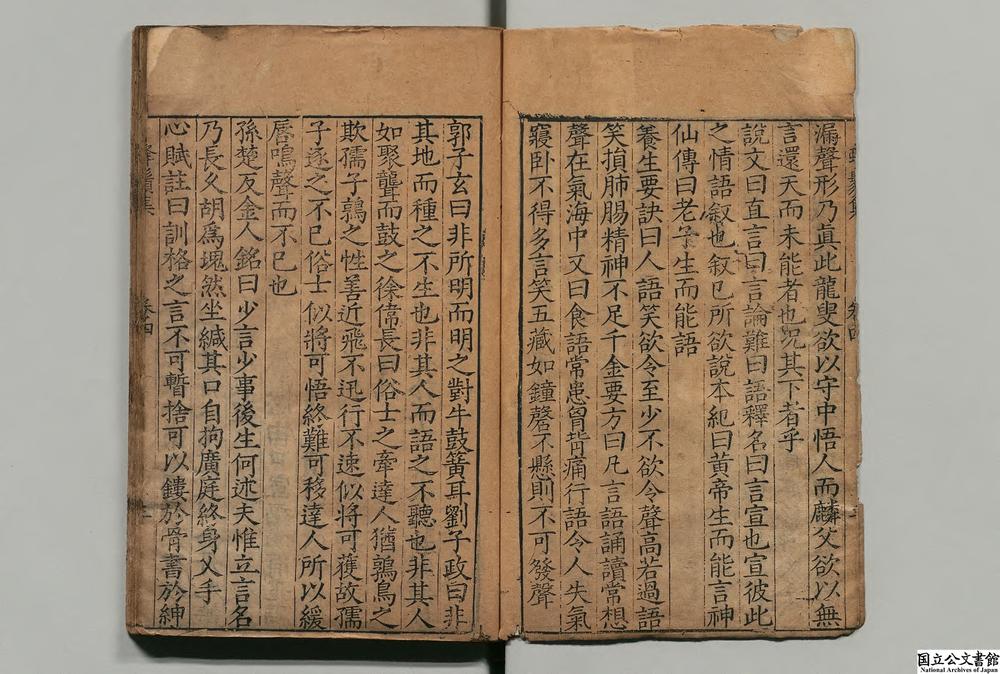 漏聲形乃真此龍叟欲以守中悟人而麟父欲以無
言還天而未能者也況其下者乎
說文曰直言曰言論難曰語釋名曰言宣也宣彼此
之情語叙也叙已所欲說本紀曰黃帝生而能言神
仙傳曰老子生而能語
養生要訣曰人語笑欲令至少不欲令聲高若過語
笑損肺腸精神不足千金要方曰凡言語誦讀常想
聲在氣海中又曰食語常患胷背痛行語令人失氣
寢卧不得多言笑五藏如鐘磬不懸則不可發聲
郭子玄曰非所明而明之對牛鼓簧耳劉子政曰非
其地而種之不生也非其人而語之不聽也非其人
如聚聾而鼓之徐偉長曰俗士之牽達人猶鶉鳥之
欺孺子鶉之性善近飛不迅行不速似將可獲故孺
子逐之不已俗士似將可悟終難可移達人所以緩
唇鳴聲而不已也
孫楚反金人銘曰少言少事後生何述夫惟立言名
乃長久胡爲塊然坐緘其口自拘廣庭終身乂手
心賦註曰訓格之言不可暫捨可以鏤於骨書於紳
卷四
卷四
National Archives of Japan
国立公文書館